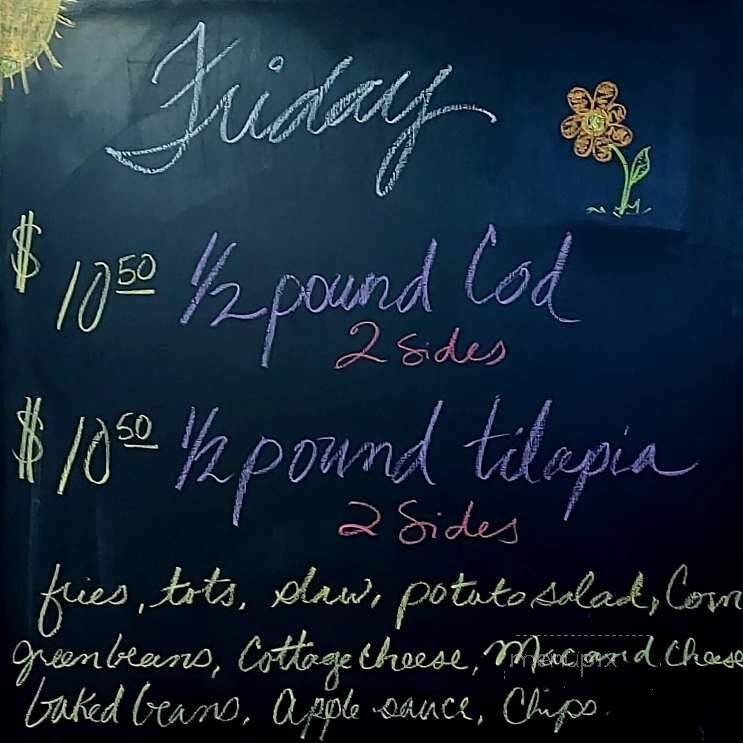 Friday
$ 10 50 1/2 pound Cod
2 Sides
$ 10 50 1/2 pound tilapia
2 Sides
fries, tots, slaw, potato salad, Corn
green beans, Cottage Cheese, Mac and Cheese
baked beans, Apple sauce, Chips.
menupix